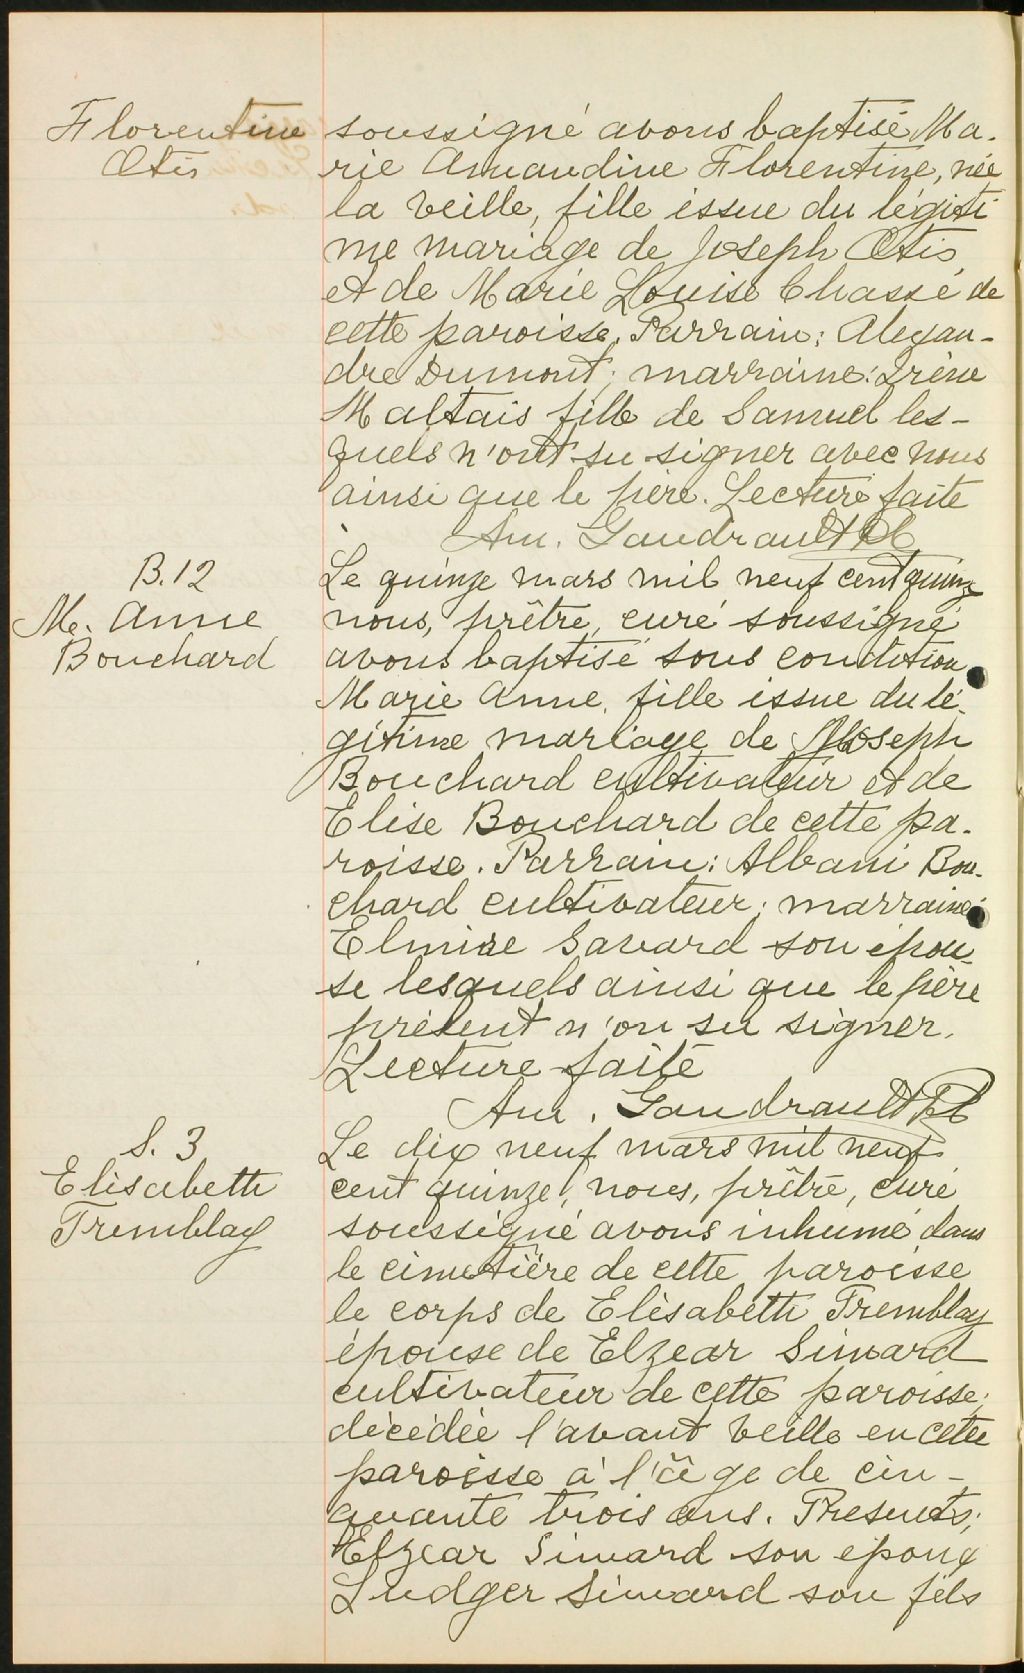 Florentine
Otis
soussigné avons baptisé Ma-
rie Amandine Florentine, née
la veille, fille issue du légiti
me mariage de Joseph Otis
et de Marie Louise Chassé de
cette paroisse. Parrain: Alexan-
dre Dumont; marraine: Irène
Maltais fille de Samuel les-
quels n'ont su signer avec nous
ainsi que le père. Lecture faite
Am. Gaudrault Ptr
B. 12
M. Anne
Bouchard
Le quinze mars mil neuf cent quinze
nous, prêtre, curé soussigné
avons baptisé sous condition
Marie Anne, fille issue du lé-
gitime mariage de Joseph
Bouchard cultivateur et de
Elise Bouchard de cette pa-
roisse. Parrain: Albani Bou-
chard cultivateur; marraine:
Elmire Savard son épou-
se lesquels ainsi que le père
présent n'on su signer.
Lecture faite
Am. Gaudrault Ptr
S. 3
Elisabeth
Tremblay
Le dix neuf mars mil neuf
cent quinze, nous, prêtre, curé
soussigné avons inhumé dans
le cimetière de cette paroisse
le corps de Elisabeth Tremblay
épouse de Elzear Simard
cultivateur de cette paroisse,
décédée l'avant veille en cette
paroisse à l'âge de cin-
quante trois ans. Presents;
Elzear Simard son epoux
Ludger Simard son fils